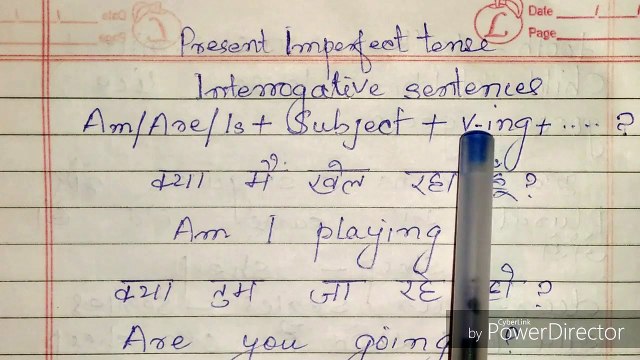 Date
Page
Present Imperfect tense
Interrogative sentences
Am/Are/Is + Subject + v-ing + .... ?
क्या मैं खेल रहा हूँ?
Am I playing
क्या तुम जा रहे हो?
Are you going ?
CyberLink
by PowerDirector